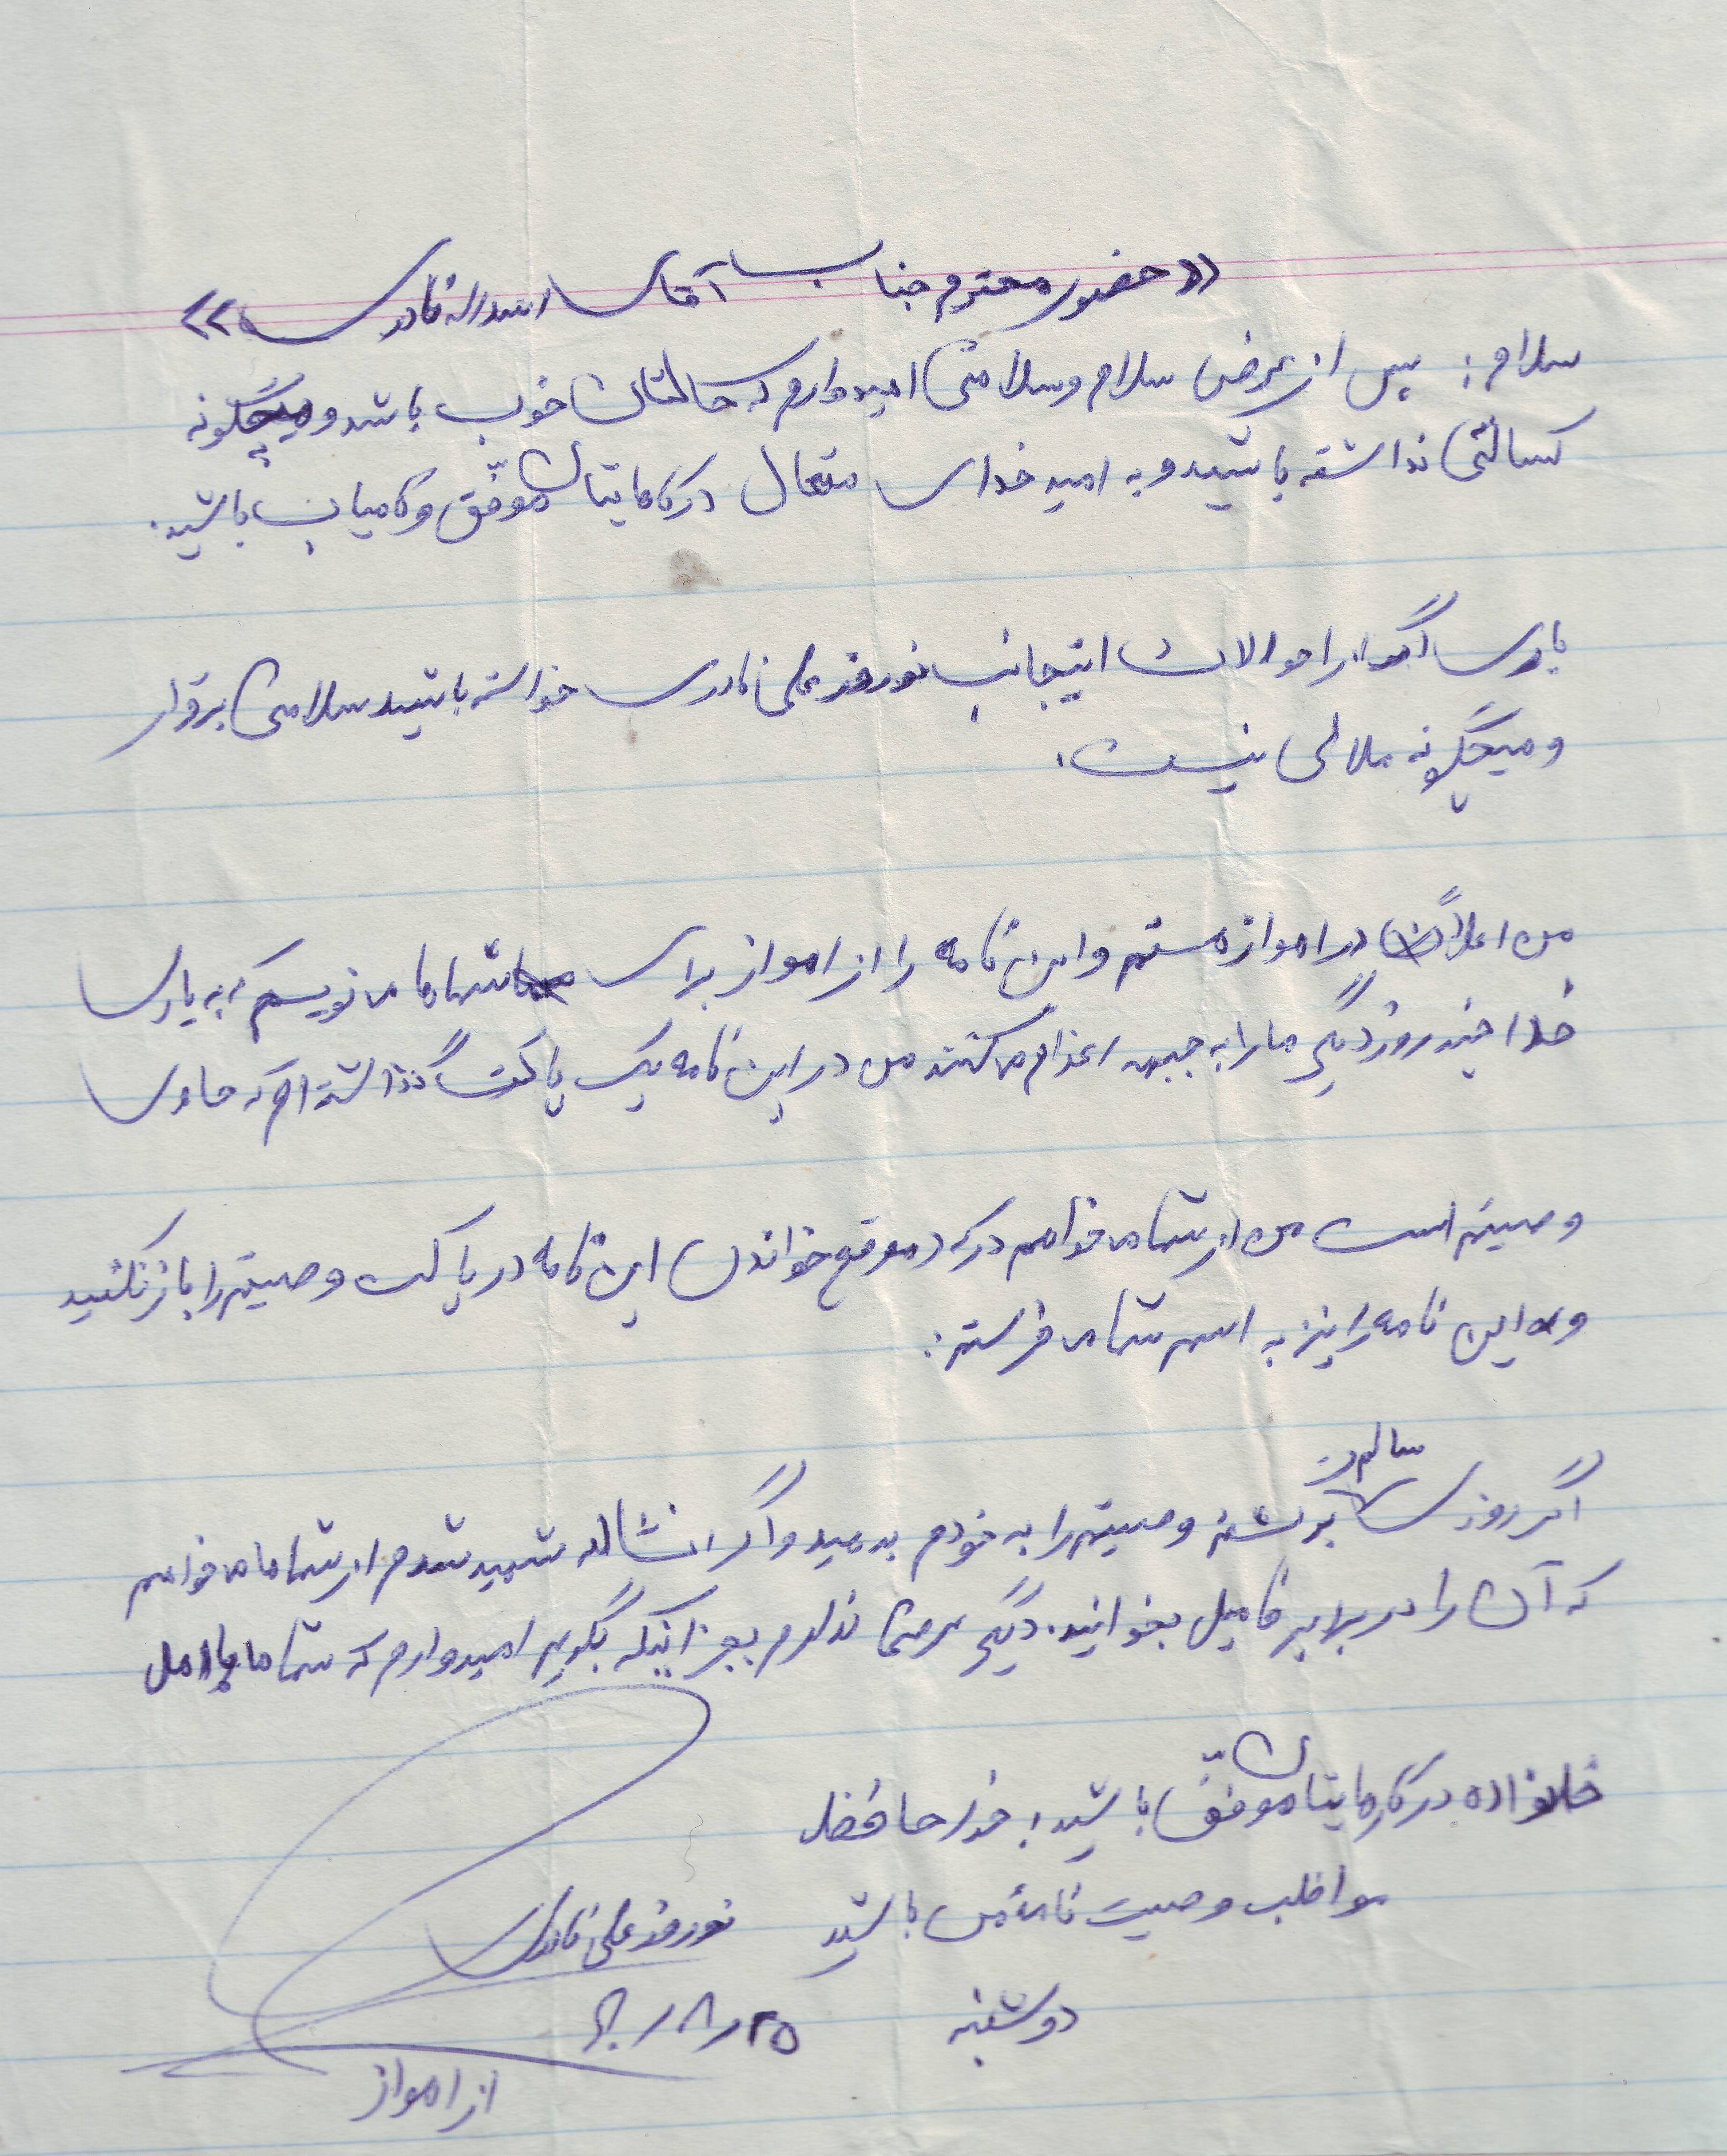 «حضور محترم جناب آقای اسداله نادری»
سلام: پس از عرض سلام و سلامتی امیدوارم که حالتان خوب باشد و هیچگونه
کسالتی نداشته باشید و به امید خدای متعال در کارهایتان موفّق و کامیاب باشید.
باری اگر از احوالات اینجانب نوروز علی نادری خواسته باشید سلامتی برقرار
و هیچگونه ملالی نیست.
من اعلاً در اهواز هستم و این نامه را از اهواز برای شماها می نویسم که به یاری
خدا چند روز دیگر ما را به جبهه اعزام می کنند من در این نامه یک پاکت گذاشته ام که حاوی
وصیتم است من از شما می خواهم در که در موقع خواندن این نامه در پاکت وصیتم را باز نکنید
و این نامه را نیز به اسم شما می فرستم:
اگر روزی سالم برگشتم وصیتم را به خودم بدهید و اگر انشاالله شهید شدم از شماها می خواهم
که آن را در برابر فامیل بخوانید. دیگر عرضی ندارم بجز اینکه بگویم امیدوارم که شماها با اهل
خانواده در کارهایتان موفّق باشید؛ خدا حافظ
مواظب وصیت نامهٔ من باشید نوروز علی نادری
دوشنبه ۲۵ر۸ر
از اهواز